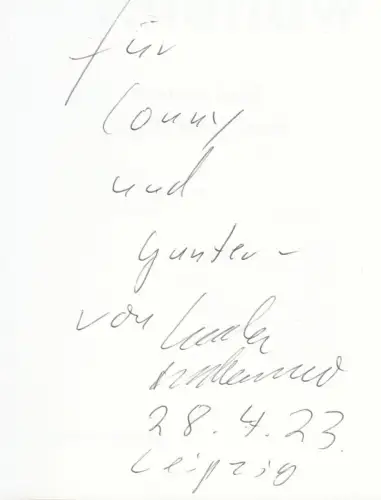 für
Conny
und
Gunter –
von
28.4.23.
Leipzig